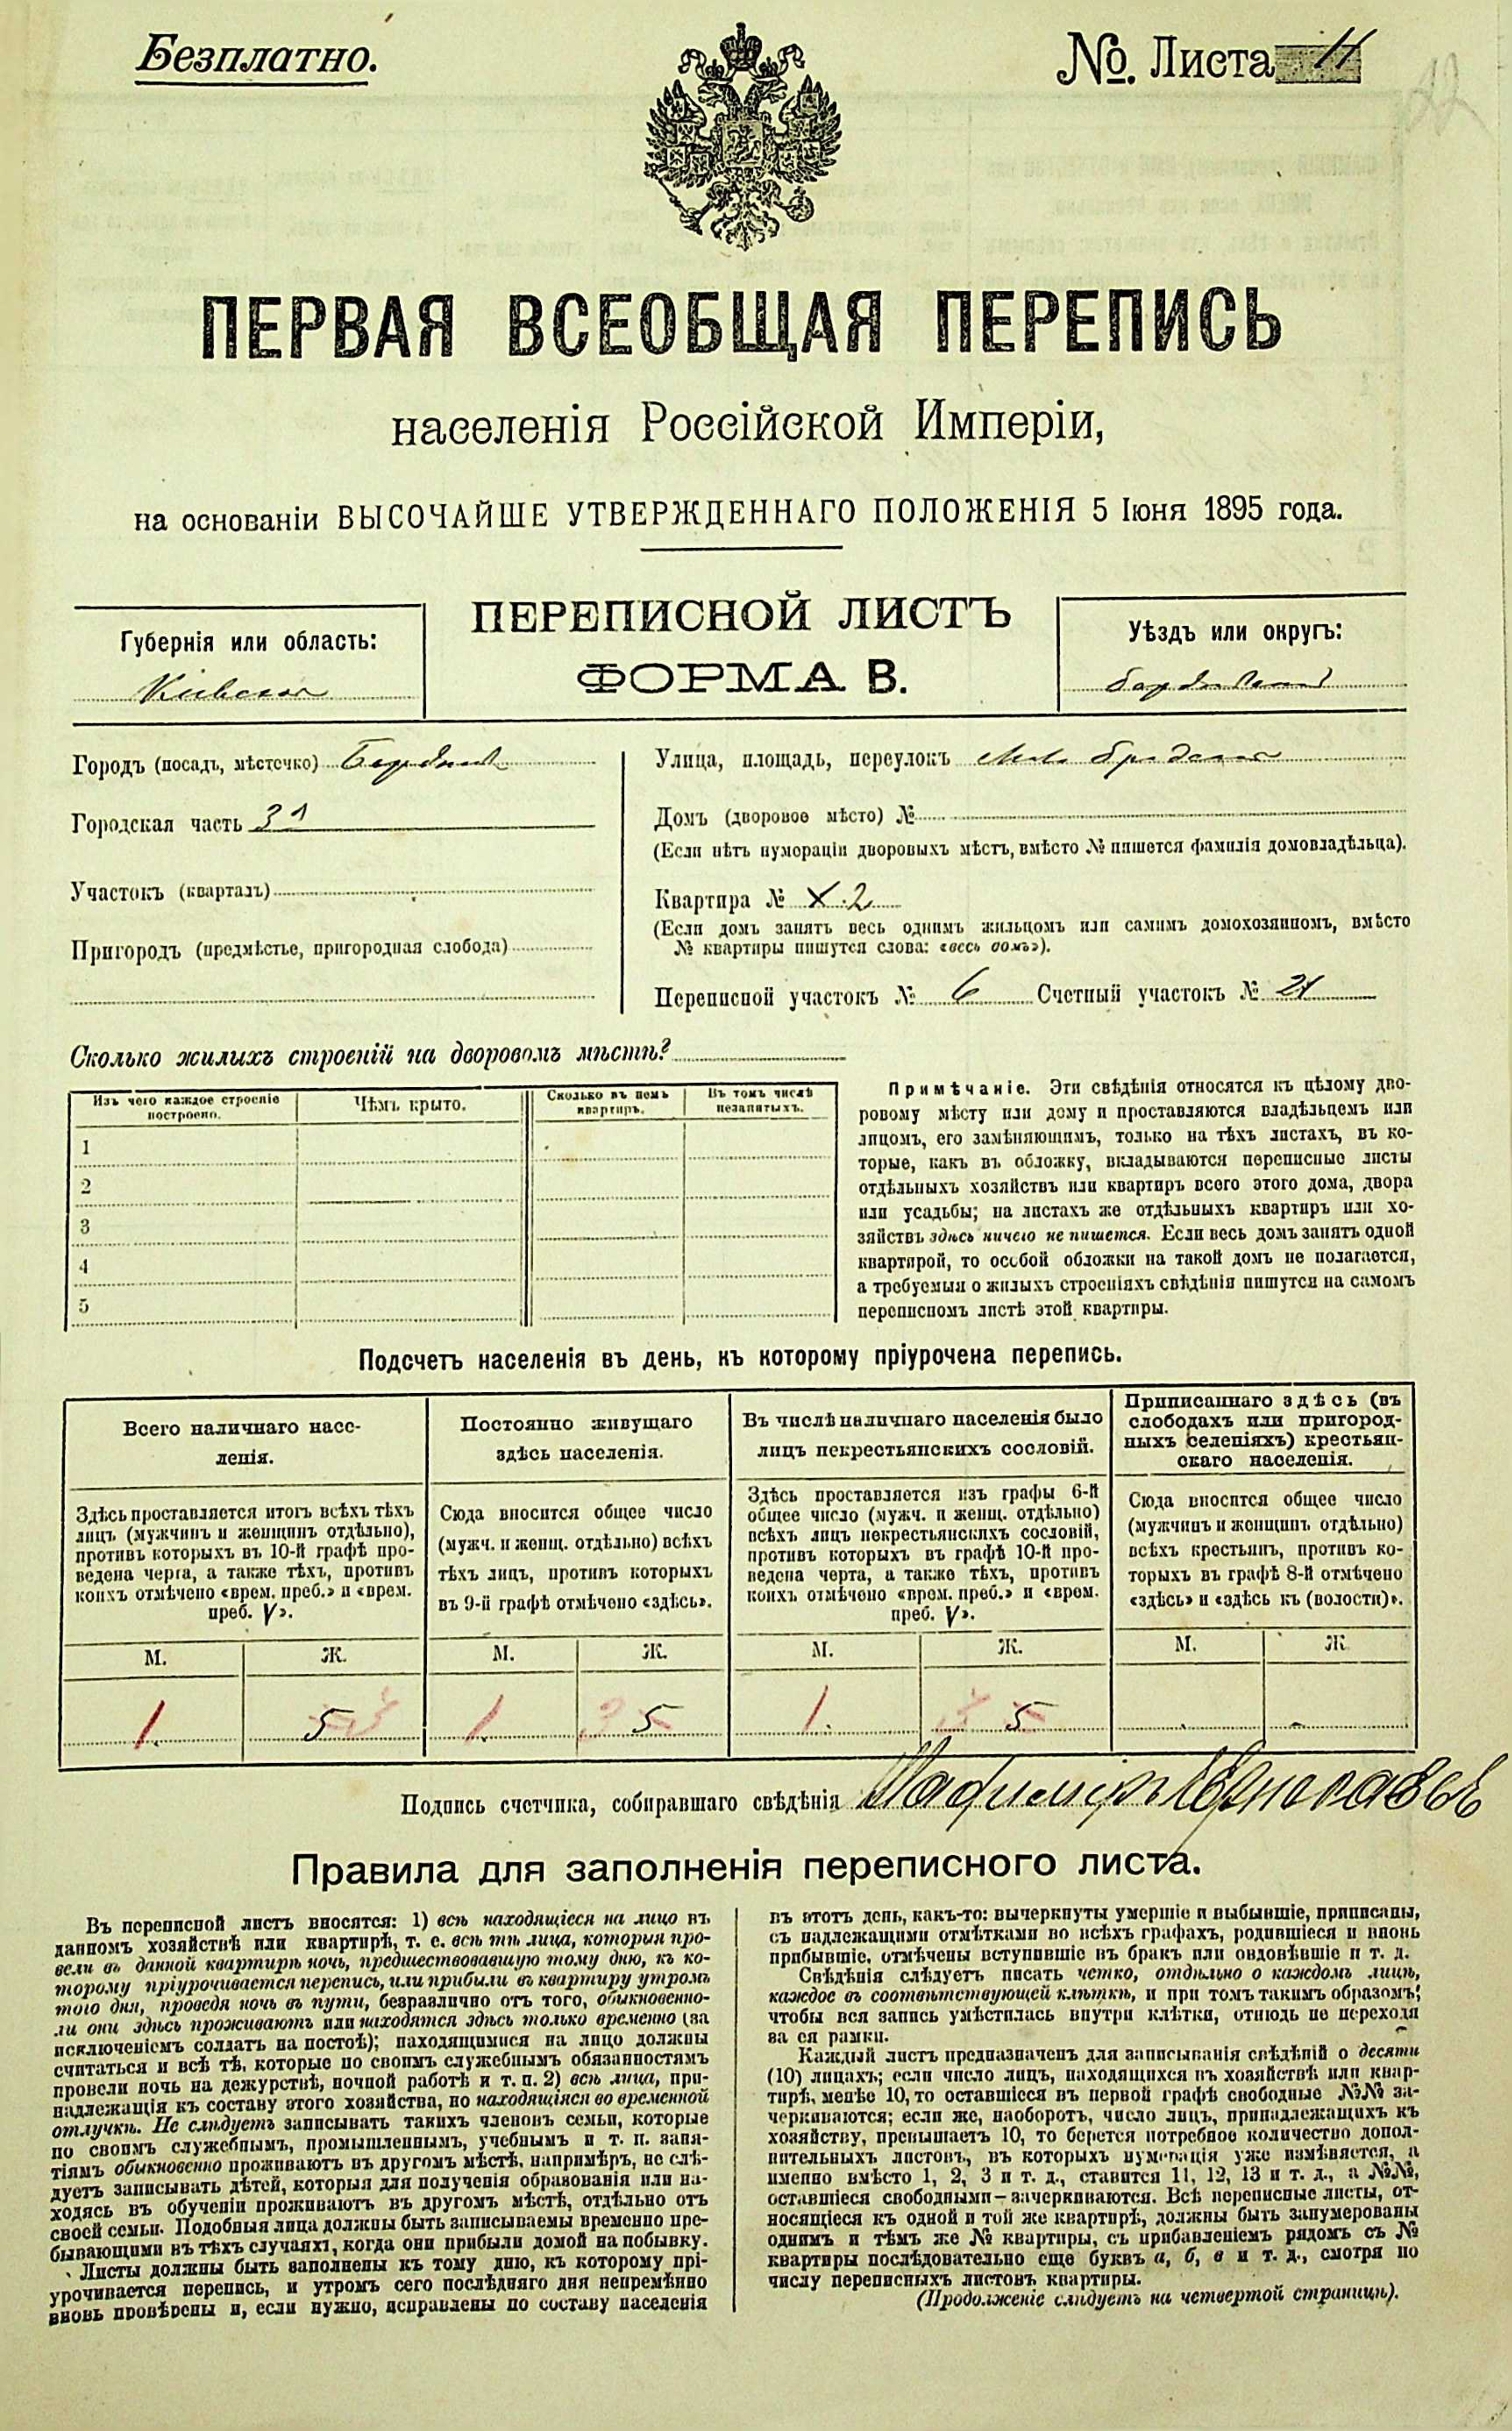 Безплатно.
№. Листа 11
22
ПЕРВАЯ ВСЕОБЩАЯ ПЕРЕПИСЬ
населенія Россійской Имперіи,
на основаніи ВЫСОЧАЙШЕ УТВЕРЖДЕННАГО ПОЛОЖЕНІЯ 5 Іюня 1895 года.
ПЕРЕПИСНОЙ ЛИСТЪ
ФОРМА В.
Губернія или область:
Кіевская
Уѣздъ или округъ:
Городъ (посадъ, мѣстечко) Бердичев
Городская часть 31
Участокъ (кварталъ)
Пригородъ (предмѣстье, пригородная слобода)
Улица, площадь, переулокъ
Домъ (дворовое мѣсто) №
(Если нѣтъ нумераціи дворовыхъ мѣстъ, вмѣсто № пишется фамилія домовладѣльца).
Квартира № X 2
(Если домъ занятъ весь однимъ жильцомъ или самимъ домохозяиномъ, вмѣсто
№ квартиры пишутся слова: «весь домъ»).
Переписной участокъ № 6 Счетный участокъ № 21
Сколько жилыхъ строеній на дворовомъ мѣстѣ?
Изъ чего каждое строеніе
построено.
Чѣмъ крыто.
Сколько въ немъ
квартиръ.
Въ томъ числѣ
незанятыхъ.
1
2
3
4
5
Примѣчаніе. Эти свѣдѣнія относятся къ цѣлому дво-
ровому мѣсту или дому и проставляются владѣльцемъ или
лицомъ, его замѣняющимъ, только на тѣхъ листахъ, въ ко-
торые, какъ въ обложку, вкладываются переписные листы
отдѣльныхъ хозяйствъ или квартиръ всего этого дома, двора
или усадьбы; на листахъ же отдѣльныхъ квартиръ или хо-
зяйствъ здѣсь ничего не пишется. Если весь домъ занятъ одной
квартирой, то особой обложки на такой домъ не полагается,
а требуемыя о жилыхъ строеніяхъ свѣдѣнія пишутся на самомъ
переписномъ листѣ этой квартиры.
Подсчетъ населенія въ день, къ которому пріурочена перепись.
Всего наличнаго насе-
ленія.
Здѣсь проставляется итогъ всѣхъ тѣхъ
лицъ (мужчинъ и женщинъ отдѣльно),
противъ которыхъ въ 10-й графѣ про-
ведена черта, а также тѣхъ, противъ
коихъ отмѣчено «врем. преб.» и «врем.
преб. V».
М. Ж.
1 5
Постоянно живущаго
здѣсь населенія.
Сюда вносится общее число
(мужч. и женщ. отдѣльно) всѣхъ
тѣхъ лицъ, противъ которыхъ
въ 9-й графѣ отмѣчено «здѣсь».
М. Ж.
1 5
Въ числѣ наличнаго населенія было
лицъ некрестьянскихъ сословій.
Здѣсь проставляется изъ графы 6-й
общее число (мужч. и женщ. отдѣльно)
всѣхъ лицъ некрестьянскихъ сословій,
противъ которыхъ въ графѣ 10-й про-
ведена черта, а также тѣхъ, противъ
коихъ отмѣчено «врем. преб.» и «врем.
преб. V».
М. Ж.
1 5
Приписаннаго здѣсь (въ
слободахъ или пригород-
ныхъ селеніяхъ) крестьян-
скаго населенія.
Сюда вносится общее число
(мужчинъ и женщинъ отдѣльно)
всѣхъ крестьянъ, противъ ко-
торыхъ въ графѣ 8-й отмѣчено
«здѣсь» и «здѣсь къ (волости)».
М. Ж
Подпись счетчика, собиравшаго свѣдѣнія
Правила для заполненія переписного листа.
Въ переписной листъ вносятся: 1) всѣ находящіеся на лицо въ
данномъ хозяйствѣ или квартирѣ, т. е. всѣ тѣ лица, которыя про-
вели въ данной квартирѣ ночь, предшествовавшую тому дню, къ ко-
торому пріурочивается перепись, или прибыли въ квартиру утромъ
того дня, проведя ночь въ пути, безразлично отъ того, обыкновенно-
ли они здѣсь проживаютъ или находятся здѣсь только временно (за
исключеніемъ солдатъ на постоѣ); находящимися на лицо должны
считаться и всѣ тѣ, которые по своимъ служебнымъ обязанностямъ
провели ночь на дежурствѣ, ночной работѣ и т. п. 2) всѣ лица, при-
надлежащія къ составу этого хозяйства, но находящіяся во временной
отлучкѣ. Не слѣдуетъ записывать такихъ членовъ семьи, которые
по своимъ служебнымъ, промышленнымъ, учебнымъ и т. п. заня-
тіямъ обыкновенно проживаютъ въ другомъ мѣстѣ, напримѣръ, не слѣ-
дуетъ записывать дѣтей, которыя для полученія образованія или на-
ходясь въ обученіи проживаютъ въ другомъ мѣстѣ, отдѣльно отъ
своей семьи. Подобныя лица должны быть записываемы временно пре-
бывающими въ тѣхъ случаяхъ, когда они прибыли домой на побывку.
Листы должны быть заполнены къ тому дню, къ которому прі-
урочивается перепись, и утромъ сего послѣдняго дня непремѣнно
вновь провѣрены и, если нужно, исправлены по составу населенія
въ этотъ день, какъ-то: вычеркнуты умершіе и выбывшіе, приписаны,
съ надлежащими отмѣтками во всѣхъ графахъ, родившіеся и вновь
прибывшіе, отмѣчены вступившіе въ бракъ или овдовѣвшіе и т. д.
Свѣдѣнія слѣдуетъ писать четко, отдѣльно о каждомъ лицѣ,
каждое въ соотвѣтствующей клѣткѣ, и при томъ такимъ образомъ,
чтобы вся запись умѣстилась внутри клѣтки, отнюдь не переходя
за ея рамки.
Каждый листъ предназначенъ для записыванія свѣдѣній о десяти
(10) лицахъ; если число лицъ, находящихся въ хозяйствѣ или квар-
тирѣ, менѣе 10, то оставшіеся въ первой графѣ свободные №№ за-
черкиваются; если же, наоборотъ, число лицъ, принадлежащихъ къ
хозяйству, превышаетъ 10, то берется потребное количество допол-
нительныхъ листовъ, въ которыхъ нумерація уже измѣняется, а
именно вмѣсто 1, 2, 3 и т. д., ставится 11, 12, 13 и т. д., а №№,
оставшіеся свободными—зачеркиваются. Всѣ переписные листы, от-
носящіеся къ одной и той же квартирѣ, должны быть занумерованы
однимъ и тѣмъ же № квартиры, съ прибавленіемъ рядомъ съ №
квартиры послѣдовательно еще буквъ а, б, в и т. д., смотря по
числу переписныхъ листовъ квартиры.
(Продолженіе слѣдуетъ на четвертой страницѣ).